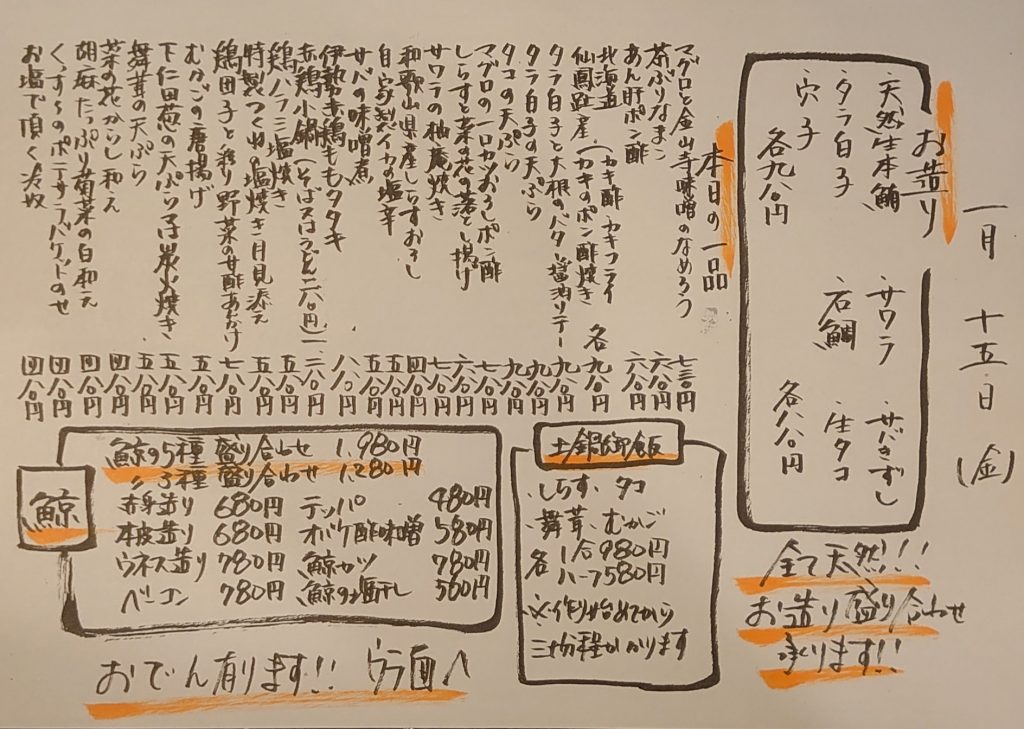 一月十五日(金)
お造り
・天然生本鮪
・タラ白子
・穴子
各九八〇円
・サワラ
・石鯛
・サバきずし
・生タコ
各八八〇円
全て天然!!!
お造り盛り合わせ
承ります!!
本日の一品
マグロと金山寺味噌のなめろう 七三〇円
茶ぶりなまこ 六八〇円
あん肝ポン酢 六八〇円
北海道
仙鳳趾産(カキ酢・カキフライ
(カキのポン酢焼き 各九八〇円
タラ白子と大根のバター醤油ソテー 九八〇円
タラ白子の天ぷら 九八〇円
タコの天ぷら 九八〇円
マグロの一口カツおろしポン酢 七八〇円
しらすと菜の花の落とし揚げ 六八〇円
サワラの柚庵焼き 七八〇円
和歌山県産しらすおろし 四八〇円
自家製イカの塩辛 五五〇円
サバの味噌煮 五八〇円
伊勢赤鶏ももタタキ 八八〇円
赤鶏小鍋(そば又はうどん二八〇円)
鶏ハラミ塩焼き 五八〇円
特製つくね塩焼き月見添え 五八〇円
鶏団子と彩り野菜の甘酢あんかけ 七八〇円
むかごの唐揚げ 五八〇円
下仁田葱の天ぷら又は炭火焼き 五八〇円
舞茸の天ぷら 五八〇円
菜の花からし和え 四八〇円
胡麻たっぷり菊菜の白和え 四八〇円
四八〇円
お塩で頂く冷奴 四八〇円
土鍋御飯
・しらす・タコ
・舞茸・むかご
各 1合980円
ハーフ580円
※作り始めてから
三十分程かかります
鯨
鯨の5種盛り合わせ 1,980円
〃3種盛り合わせ 1,280円
赤身造り 680円
本皮造り 680円
ウネス造り 780円
ベーコン 780円
テッパ 480円
オバケ酢味噌 580円
鯨カツ 780円
鯨の塩干し 500円
おでん有ります!! ウラ面へ